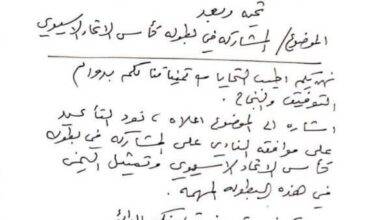 تحية وبعد
الموضوع / المشاركة في بطولة كأس الاتحاد الاسيوي
نهديكم اطيب التحايا مع تمنياتنا لكم بدوام
التوفيق والنجاح .
اشارة الى الموضوع اعلاه ، نود التأكيد
على موافقة النادي على المشاركة في بطولة
كأس الاتحاد الاسيوي وتمثيل اليمن
في هذه البطولة المهمة .